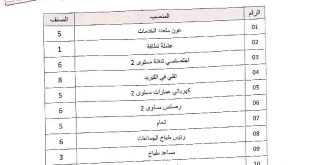 الرقم المنصب الصنف
01 عون متعدد الخدمات 5
02 عاملة نظافة 1
03 اختصاصي تدفئة مستوى 2 6
04 تقني في التبريد 8
05 كهربائي عمارات مستوى 2 5
06 رصاص مستوى 2 6
07 لحام 5
08 رئيس طباخ الجماعات 6
09 مساعد طباخ 3
10